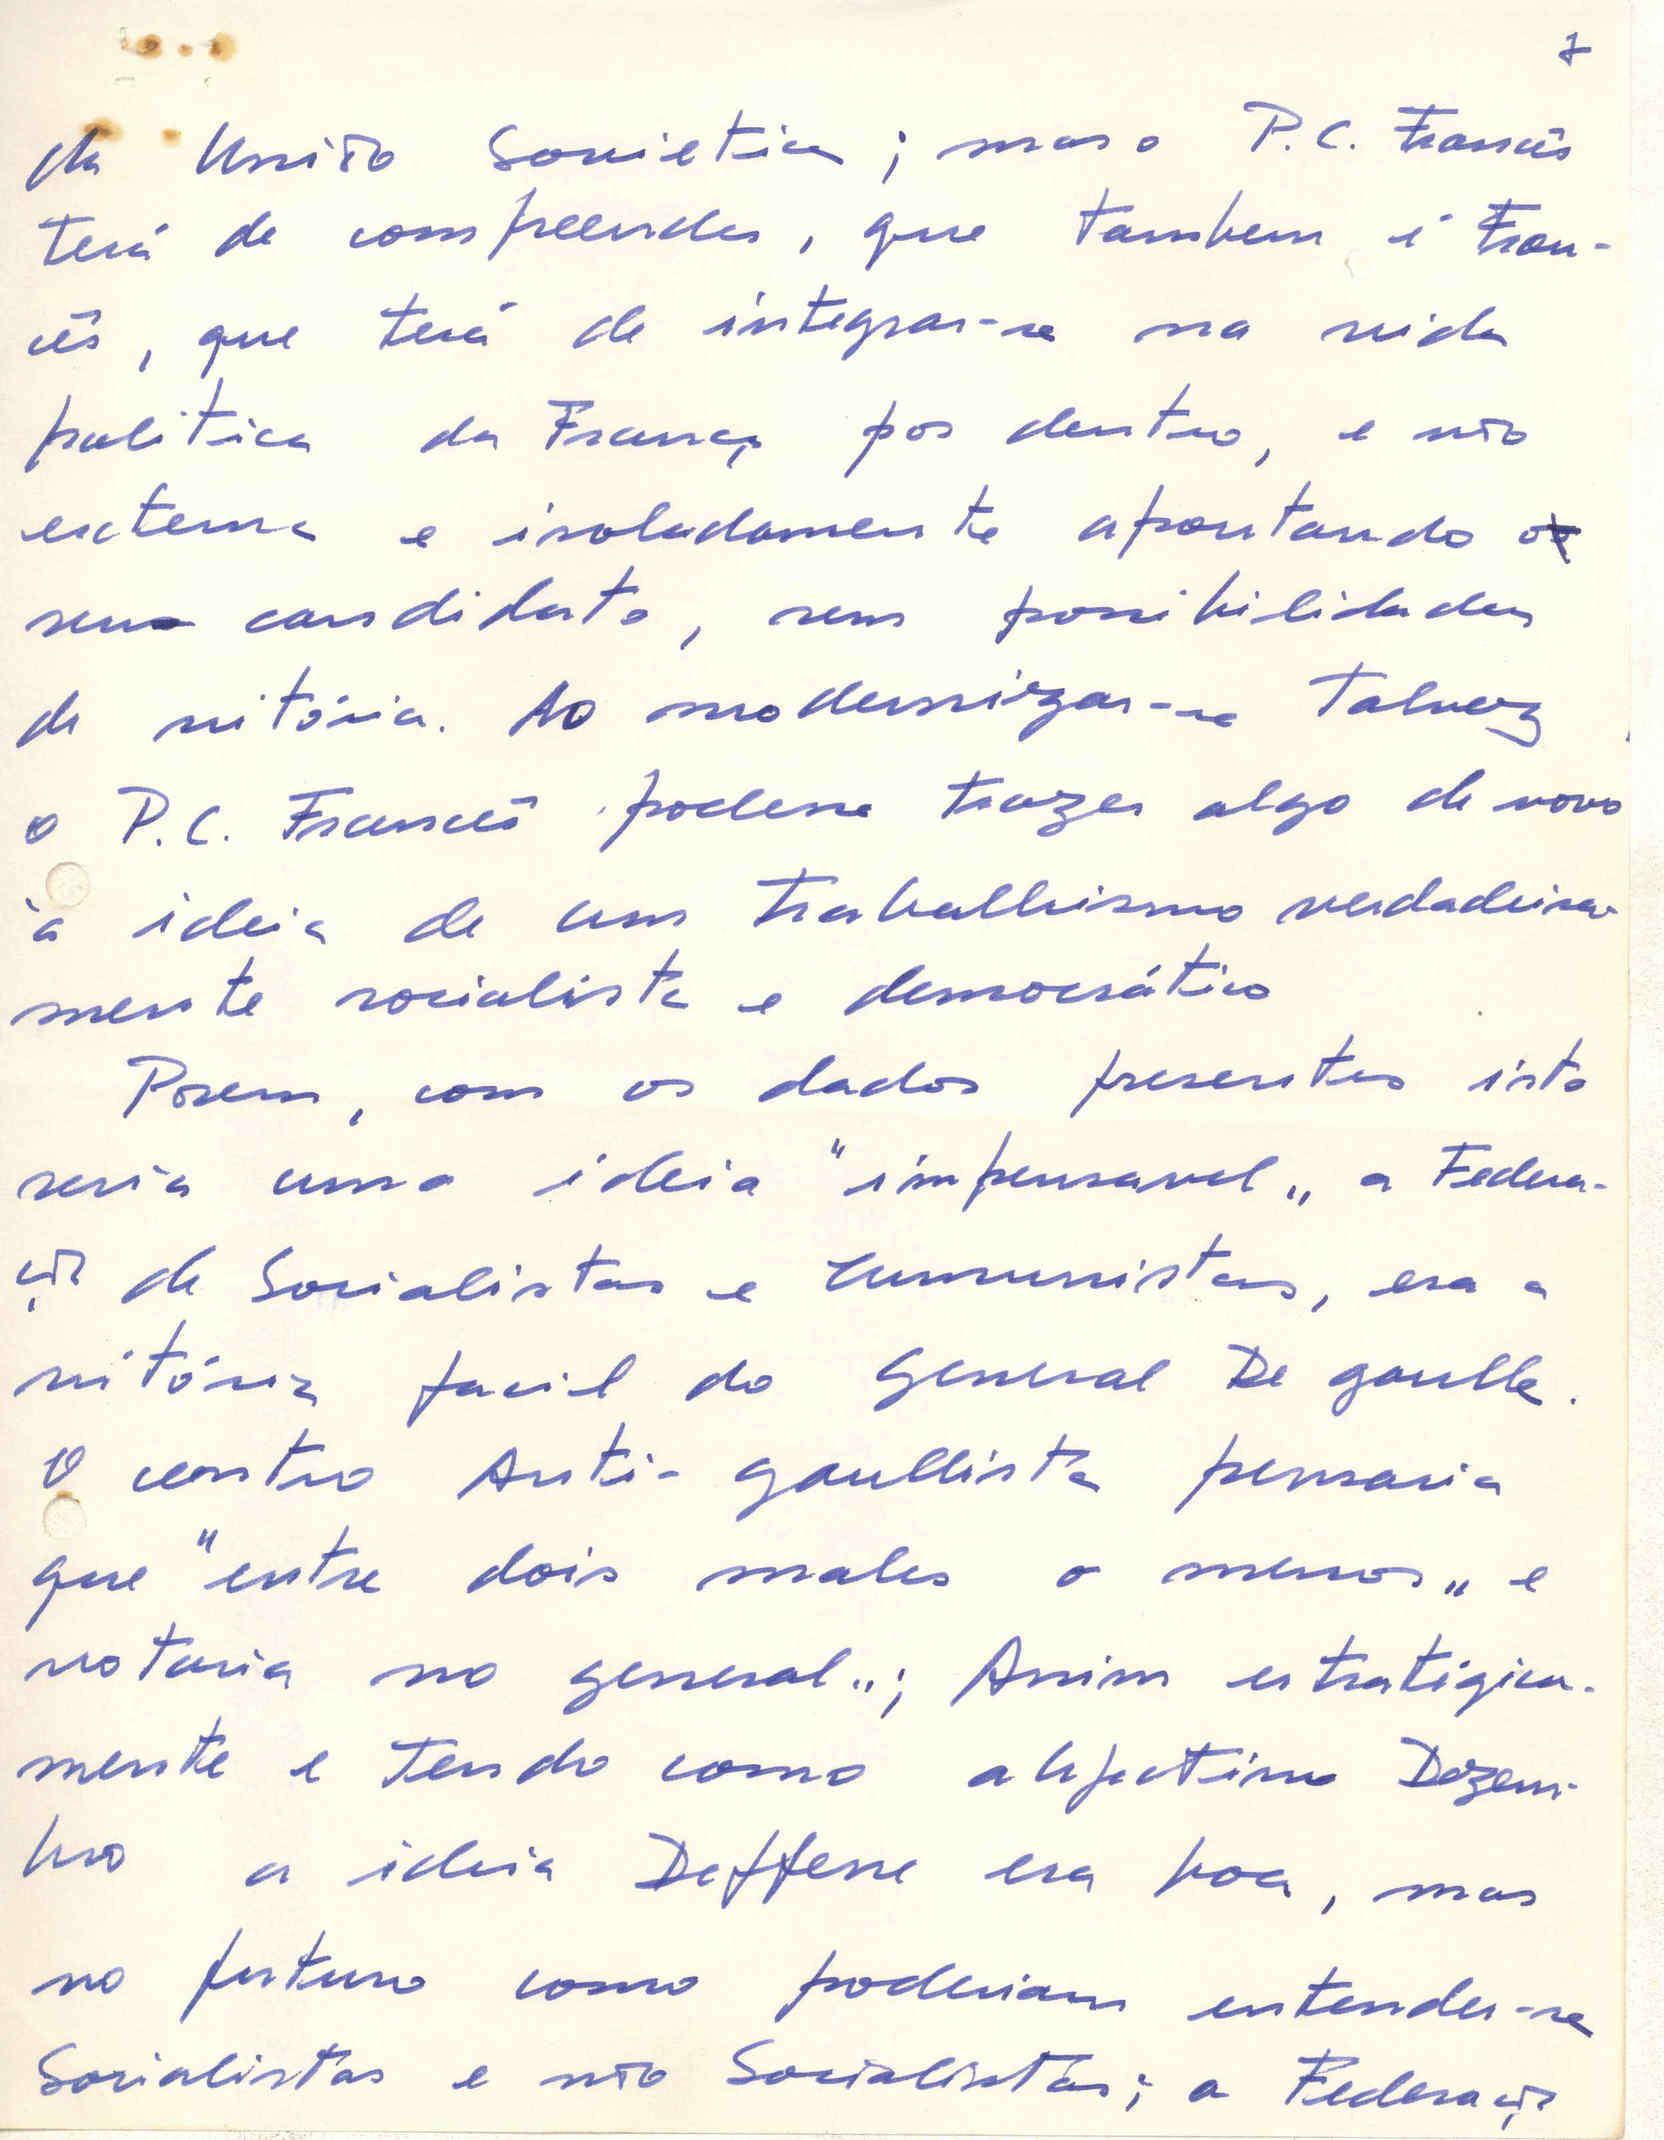 7
da União Sovietica; mas o P.C. Francês
terá de compreender, que tambem é Fran-
cês, que terá de integrar-se na vida
politica da França por dentro, e não
externa e isoladamente apontando
seu candidato, sem possibilidades
de vitória. Ao modernizar-se talvez
o P.C. Francês podesse trazer algo de novo
à ideia de um trabalhismo verdadeira-
mente socialista e democrático
Porem, com os dados presentes isto
seria uma ideia "impensavel„ a Federa-
ção de Socialistas e Comunistas, era a
vitória facil do General De Gaulle.
O centro Anti-Gaullista pensaria
que "entre dois males o menor„ e
votaria no general„; Assim estratégica-
mente e tendo como objectivo Dezem-
bro a ideia Defferre era boa, mas
no futuro como poderiam entender-se
Socialistas e não Socialistas; a Federação